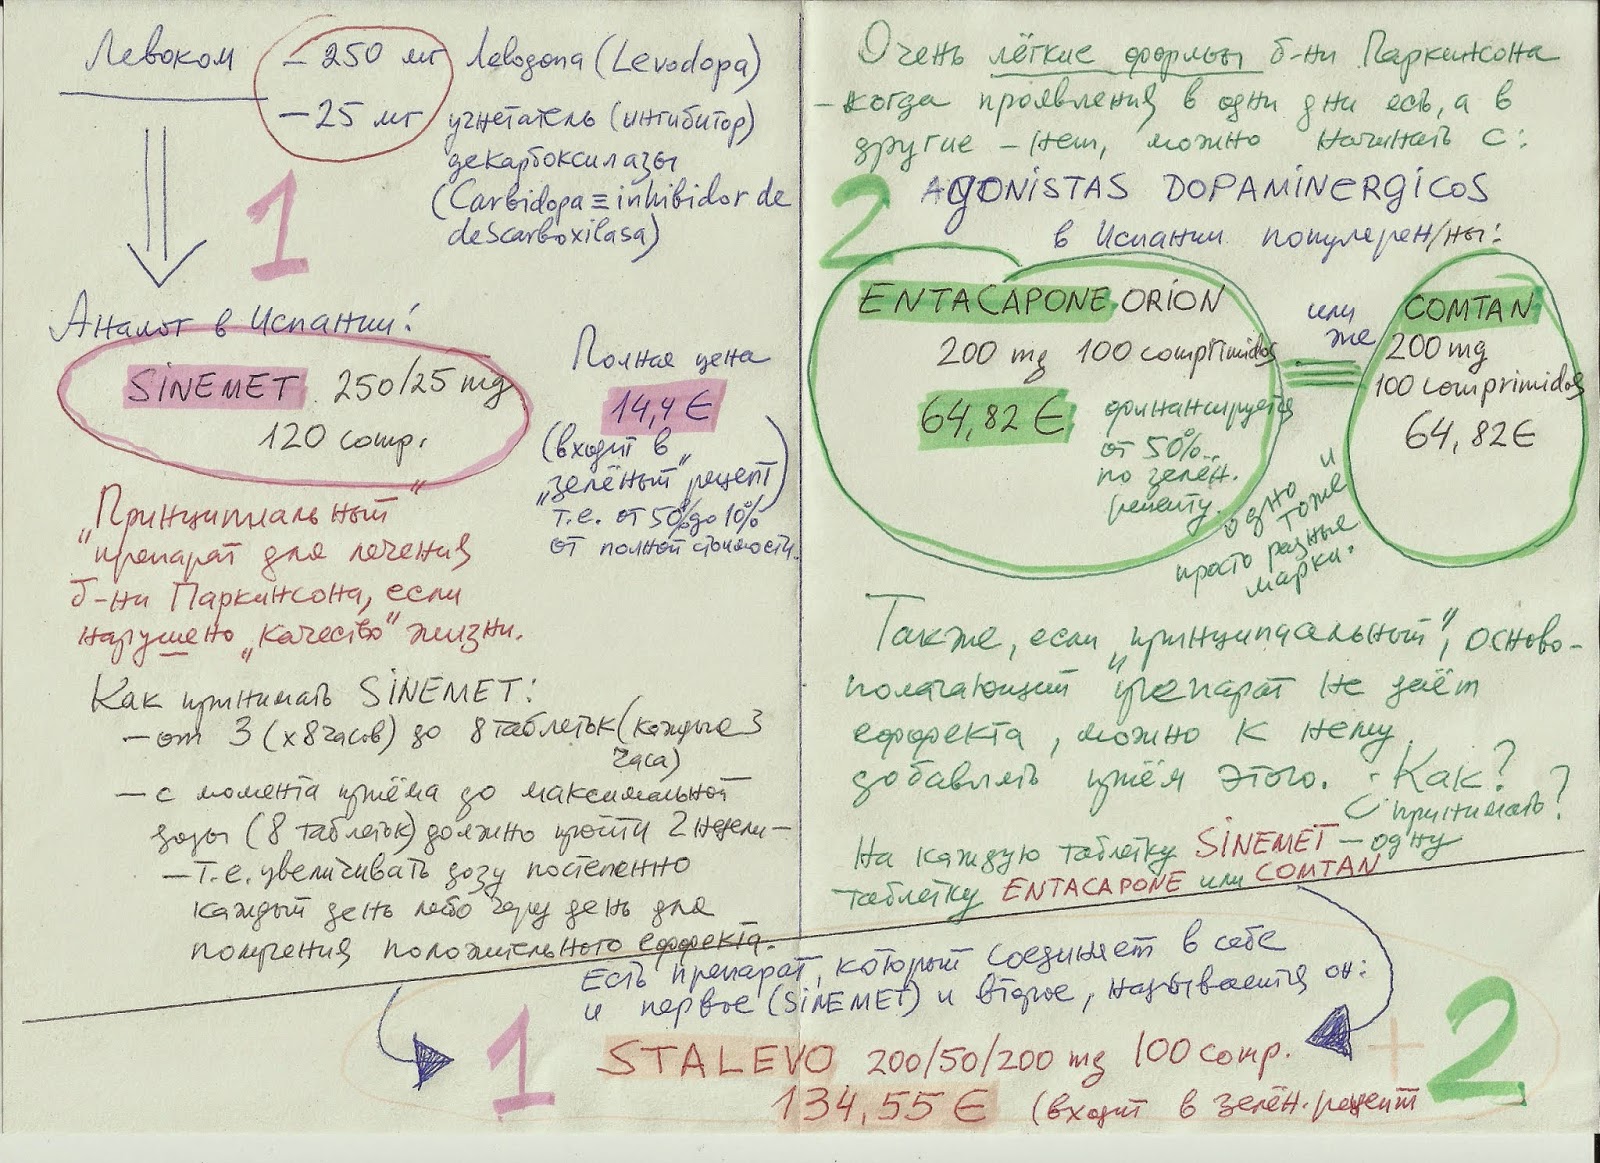 Левоком — 250 мг Леводопа (Levodopa)
— 25 мг угнетатель (ингибитор)
декарбоксилазы
(Carbidopa ≡ inhibidor de
descarboxilasa)
1
Аналог в Испании:
SINEMET 250/25 mg
120 comp.
Полная цена
14,4 €
(входит в
„зелёный" рецепт)
т.е. от 50% до 10%
от полной стоимости.
„Принципиальный"
препарат для лечения
б-ни Паркинсона, если
нарушено „качество" жизни.
Как принимать SINEMET:
— от 3 (х 8 часов) до 8 таблеток (каждые 3
часа)
— с момента приёма до максимальной
дозы (8 таблеток) должно пройти 2 недели —
— т.е. увеличивать дозу постепенно
каждый день либо через день для
получения положительного еффекта.
Очень лёгкие формы б-ни Паркинсона
— когда проявления в одни дни есть, а в
другие — нет, можно начинать с:
2 AGONISTAS DOPAMINERGICOS
в Испании популерен/ны:
ENTACAPONE ORION
200 mg 100 comprimidos
64,82 €
финансируется
от 50%..
по зелён.
рецепту.
или
же
COMTAN
200 mg
100 comprimidos
64,82 €
одно и
тоже
просто разные
марки.
Также, если „принципиальный", осново-
полагающий препарат не даёт
еффекта, можно к нему
добавлять приём этого. Как?
Принимать?
На каждую таблетку SINEMET — одну
таблетку ENTACAPONE или COMTAN
Есть препарат, который соединяет в себе
и первое (SINEMET) и второе, называется он:
1 STALEVO 200/50/200 mg 100 comp. + 2
134,55 € (входит в зелён. рецепт